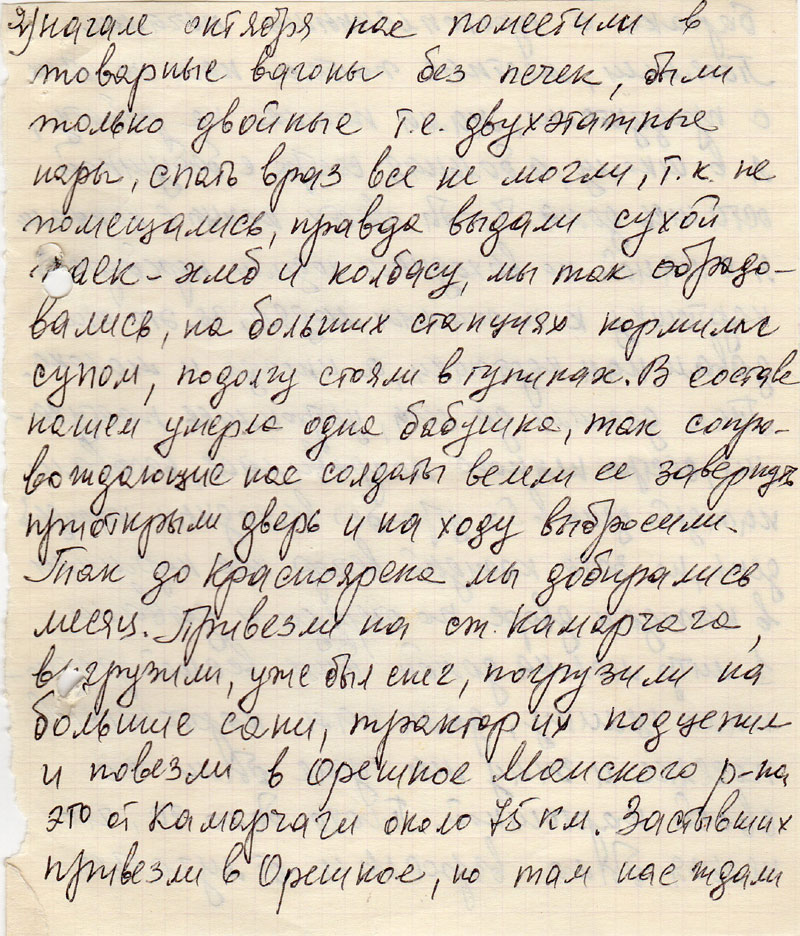 2) начале октября нас поместили в
товарные вагоны без печек, были
только двойные т.е. двухэтажные
нары, спать враз все не могли, т.к. не
помещались, правда выдали сухой
паек – хлеб и колбасу, мы так обрадо-
вались, на больших станциях кормили
супом, подолгу стояли в тупиках. В составе
нашем умерла одна бабушка, так сопро-
вождающие нас солдаты велели ее завернуть
приоткрыли дверь и на ходу выбросили.
Так до Красноярска мы добирались
месяц. Привезли на ст. Камарчага,
выгрузили, уже был снег, погрузили на
большие сани, трактор их подцепил
и повезли в Орешное Манского р-на
это от Камарчаги около 75 км. Застывших
привезли в Орешное, но там нас ждали